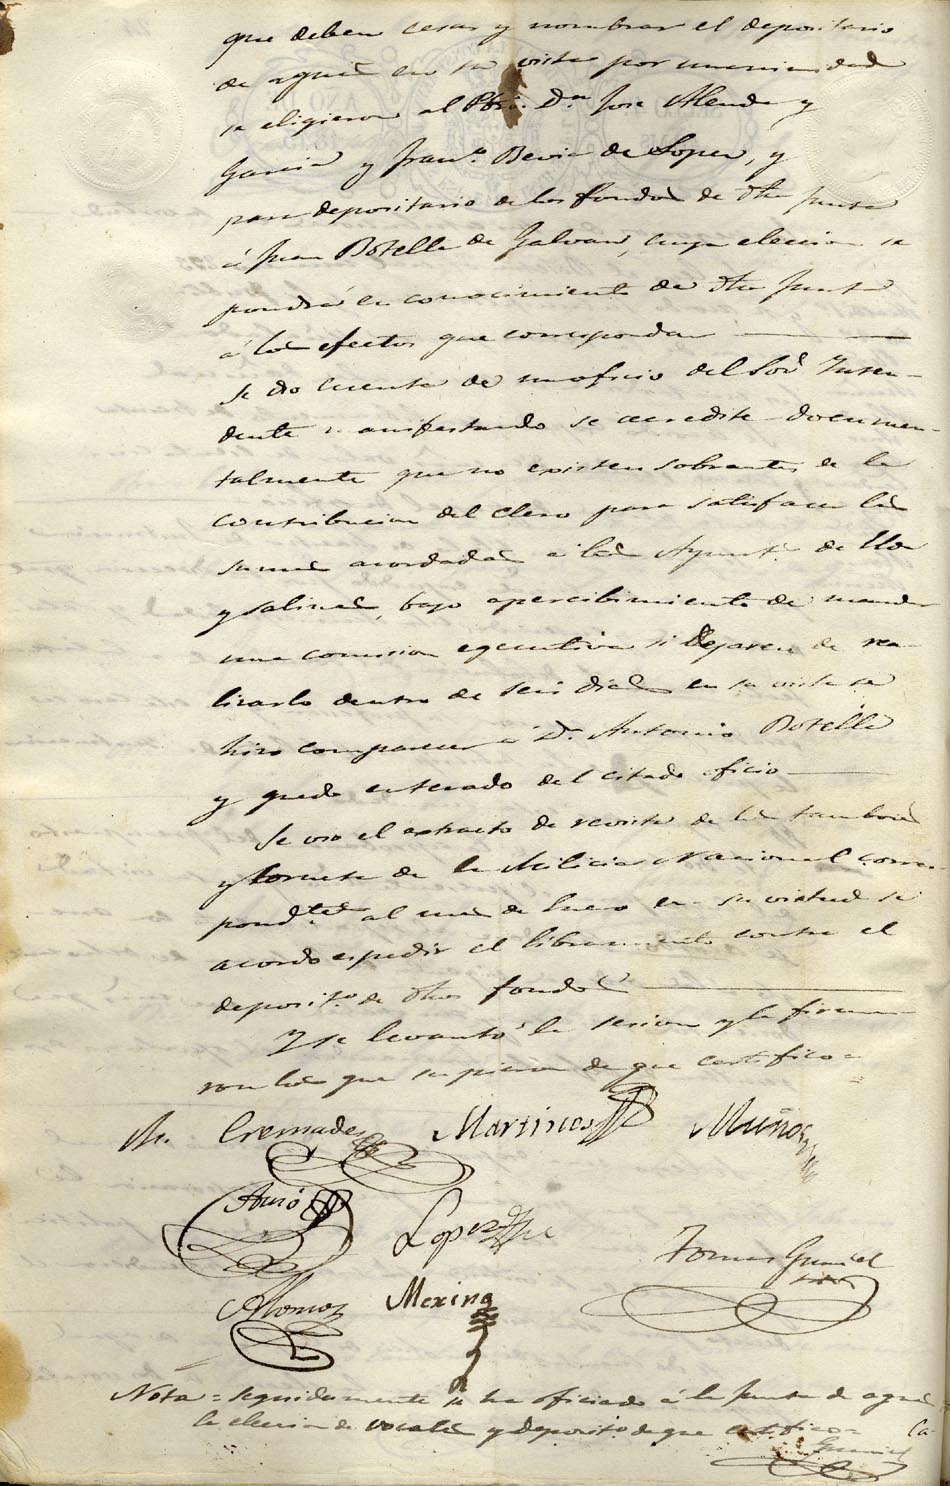 que deben cesar y nombrar el depositario
de aguas en su vista por unanimidad
se eligieron al Pbro. Dn. Jose Alenda y
Garcia y Franco. Bevia de Lopez, y
para depositario de los fondos de dha Junta
á Juan Botella de Galvañ, cuya eleccion se
pondrá en conocimiento de dha Junta
á los efectos que correspondan
Se dio cuenta de un oficio del Sor. Inten-
dente manifestando se acredite documen-
talmente que no existen sobrantes de la
contribucion del Clero para satisfacer las
sumas acordadas a los Ayunts. de Elda
y Salinas, bajo apercibimiento de mandar
una comision egecutiva si dejaren de rea-
lizarlo dentro de seis dias en su vista se
hizo comparecer á Dn. Antonio Botella
y quedó enterado del citado oficio
Se vio el extracto de revista de los tambores
y corneta de la Milicia Nacional corres-
pondtes. al mes de Enero en su virtud se
acordó espedir el libramiento contra el
deposito. de dhos fondos
Y se levantó la sesion y la firma-
ron los que supieron de que certifico =
Cremades Martinez Muñoz
Amó Lopez
Tomas Guaniel
Alonso Merino
Nota = Seguidamente se ha oficiado á la Junta de aguas la
la eleccion de vocales y deposito. de que certifico =